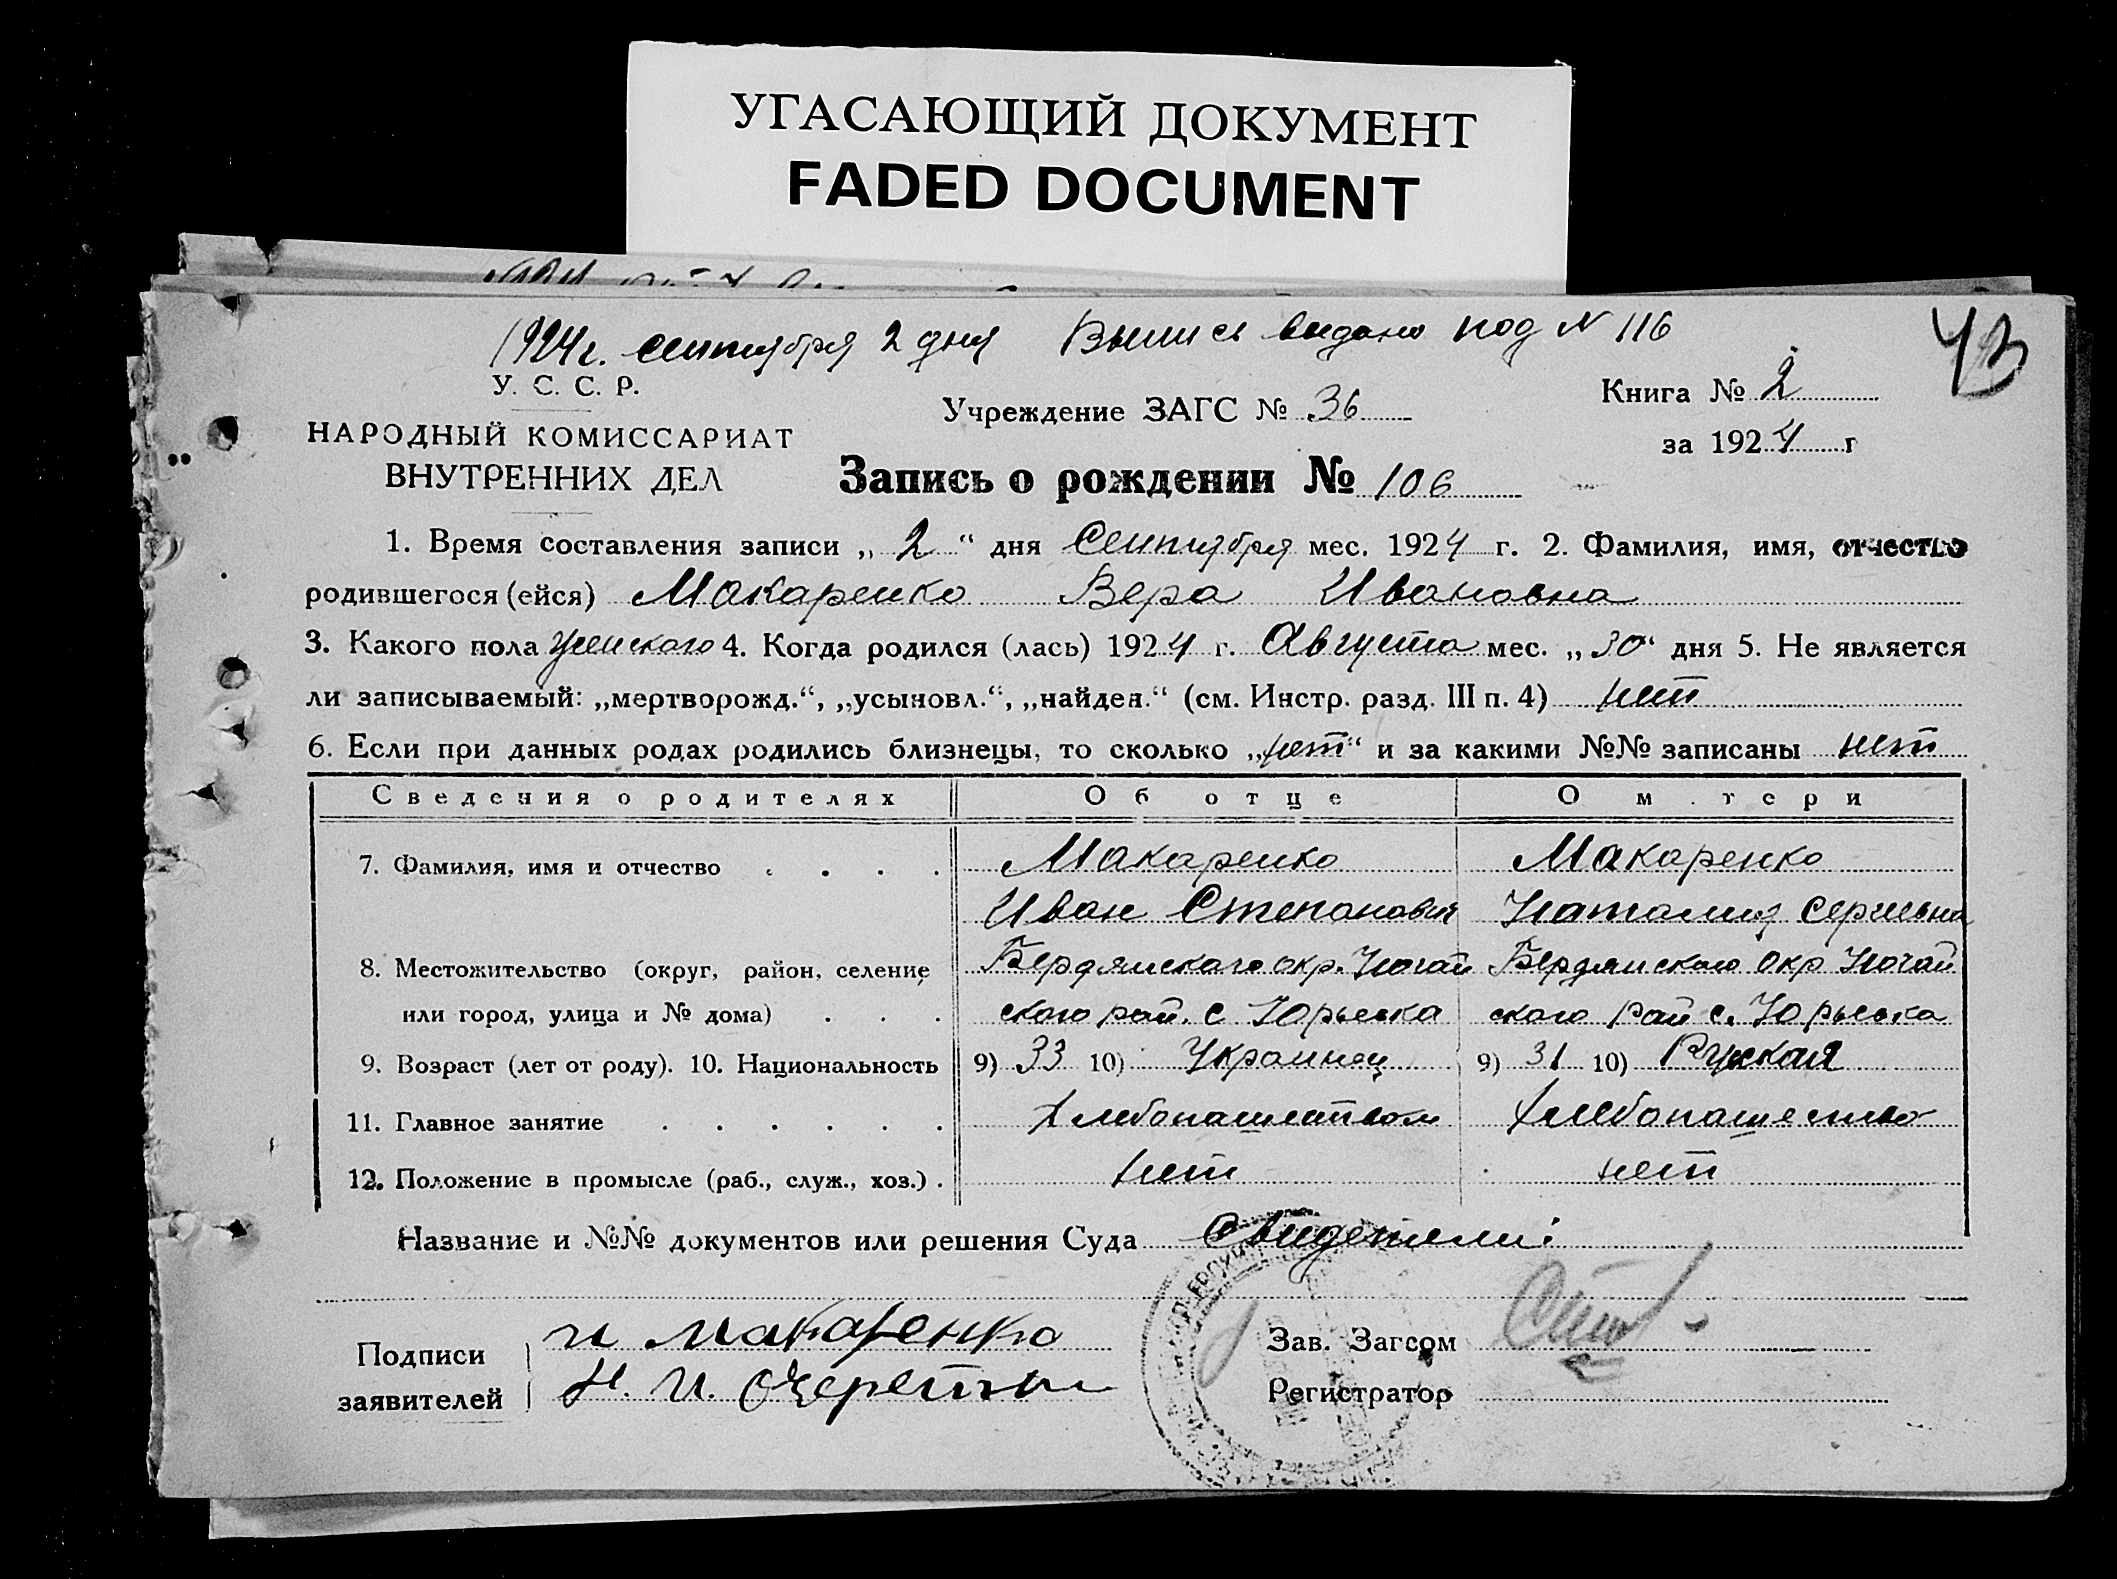 УГАСАЮЩИЙ ДОКУМЕНТ
FADED DOCUMENT
1924 г. сентября 2 дня Выпись видано под № 116
43
У. С. С. Р.
Учреждение ЗАГС № 36
Книга № 2
за 1924 г
НАРОДНЫЙ КОМИССАРИАТ
ВНУТРЕННИХ ДЕЛ
Запись о рождении № 106
1. Время составления записи „ 2 “ дня Сентября мес. 1924 г. 2. Фамилия, имя, отчество
родившегося (ейся) Макаренко Вера Ивановна
3. Какого пола женского 4. Когда родился (лась) 1924 г. Августа мес. „ 30 “ дня 5. Не является
ли записываемый: „мертворожд.“, „усыновл.“, „найден.“ (см. Инстр. разд. III п. 4) нет
6. Если при данных родах родились близнецы, то сколько „нет“ и за какими №№ записаны нет
Сведения о родителях Об отце О м.тери
7. Фамилия, имя и отчество . . . . Макаренко Макаренко
Иван Степанович Наталия Сергиевна
8. Местожительство (округ, район, селение Бердянского окр. Ногай Бердянского окр Ногай
или город, улица и № дома) . . . ского рай. с Юрьевка ского рай с. Юрьевка
9. Возраст (лет от роду). 10. Национальность 9) 33 10) Украинец 9) 31 10) Руская
11. Главное занятие . . . . . . Хлебопашеством Хлебопашество
12. Положение в промысле (раб., служ., хоз.) . нет нет
Название и №№ документов или решения Суда Свидетели:
Подписи
заявителей
и Макаренко
Н. И.
Зав. Загсом
Регистратор